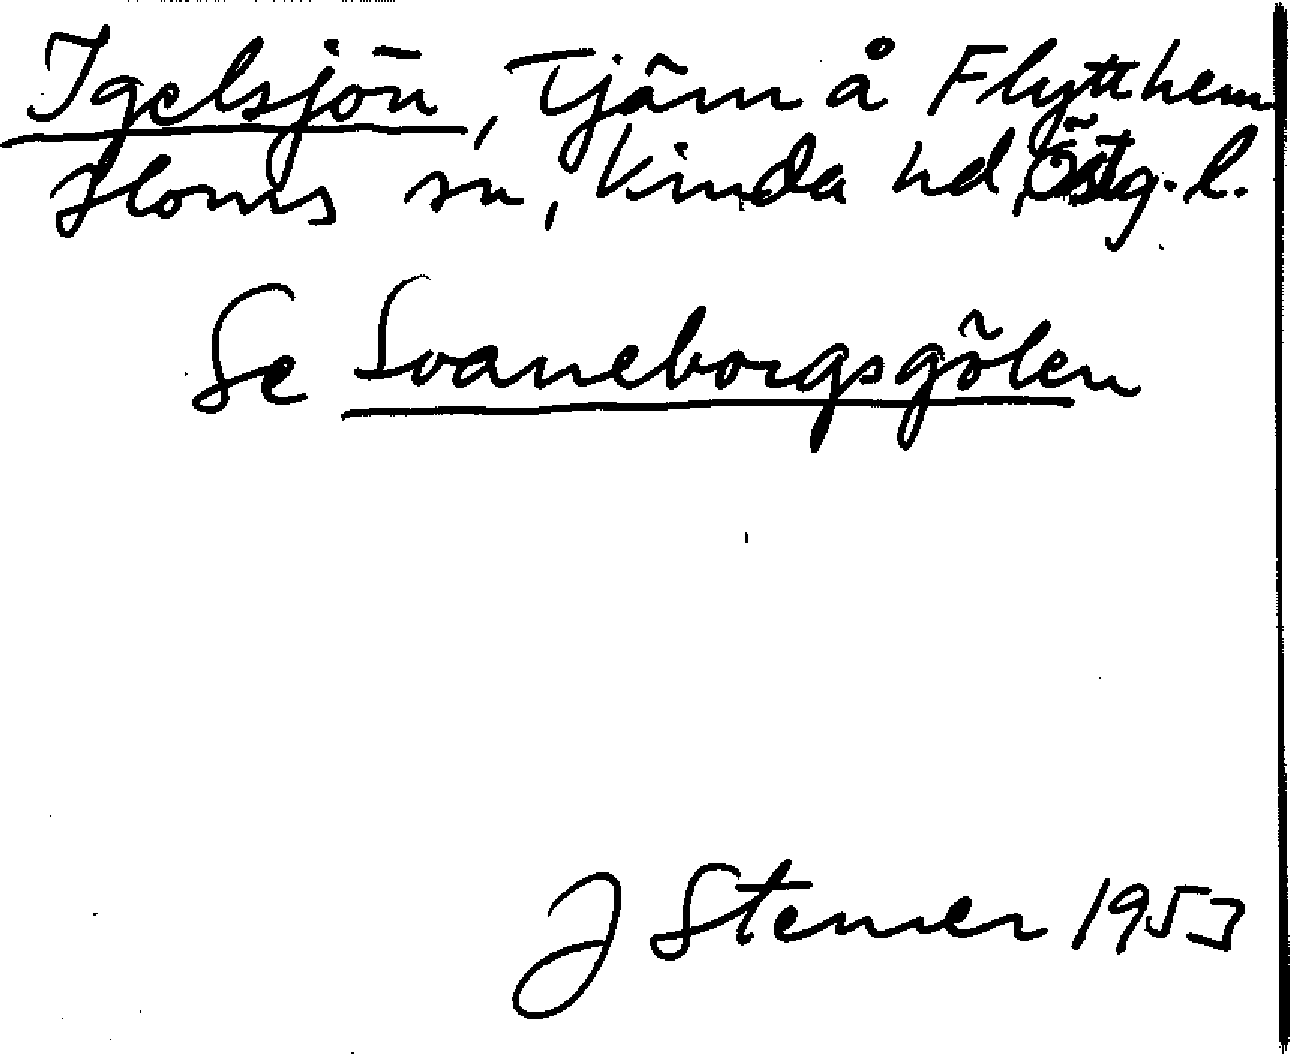 Igelsjön, Tjärn å Flytthem
Horns sn, Kinda hd Östg. l.
Se Svaneborgsgölen
J Stemer 1953